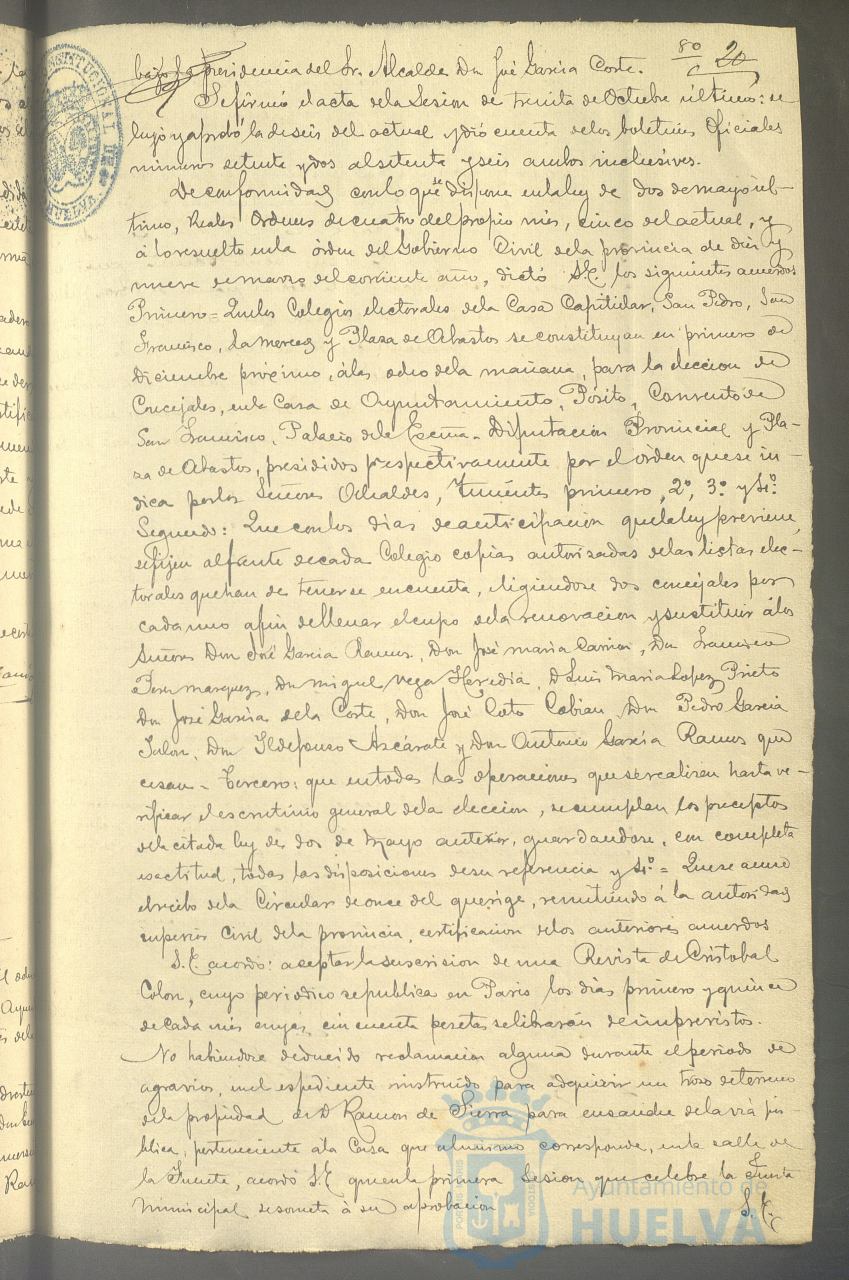 80 20
bajo la presidencia del Sr. Alcalde Don José García Corte.
Se firmó el acta de la Sesion de treinta de Octubre último: se
leyó y aprobó la de seis del actual y dió cuenta de los boletines Oficiales
números setenta y dos al setenta y seis ambos inclusives.
De conformidad con lo que se dispone en la ley de dos de mayo úl-
timo, Reales Ordenes de cuatro del propio mes, cinco del actual, y
á lo resuelto en la órden del Gobierno Civil de la provincia de diez y
nueve de marzo del corriente año, dictó S.E. los siguientes acuerdos
Primero = Que los Colegios electorales de la Casa Capitular, San Pedro, San
Francisco, la Merced y Plaza de Abastos se constituyan en primero de
Diciembre próximo, á las ocho de la mañana, para la eleccion de
Concejales, en la Casa de Ayuntamiento, Pósito, Convento de
San Francisco, Palacio de la Excma. Diputacion Provincial y Pla-
za de Abastos, presididos respectivamente por el órden que se in-
dica por los Señores Alcaldes, Tenientes primero, 2º, 3º y 4º.
Segundo: Que con los dias de anticipacion que la ley previene,
se fijen al frente de cada Colegio copias autorizadas de las listas elec-
torales que han de tenerse en cuenta, eligiendose dos concejales por
cada uno a fin de llenar el cupo de la renovacion y sustituir á los
Señores Don José Garcia Ramos, Don José maria Carrion, Don Francisco
Perez marquez, Don miguel Vega Heredia, D Luis Maria Lopez Prieto
Don José Garcia de la Corte, Don José Coto Cobian, Don Pedro Garcia
Jalon, Don Ildefonso Azcárate y Don Antonio Garcia Ramos que
cesan - Tercero: que en todas las operaciones que se realicen hasta ve-
rificar el escrutinio general de la eleccion, se cumplan los preceptos
de la citada ley de dos de Mayo anterior, guardandose, con completa
exactitud, todas las disposiciones de su referencia y 4º = Que se acuse
el recibo de la Circular de once del que rige, remitiendo á la autoridad
superior Civil de la provincia, certificacion de los anteriores acuerdos
S.E. acordó: aceptar la suscrision de una Revista de Cristobal
Colon, cuyo periodico se publica en Paris los dias primero y quince
de cada mes cuyas cincuenta pesetas se librarán de imprevistos.
No habiendose deducido reclamacion alguna durante el periodo de
agravios, en el espediente instruido para adquirir un trozo de terreno
de la propiedad de D Ramon de Sierra para ensanche de la via pú-
blica, perteneciente á la Casa que al mismo corresponde, en la calle de
la Fuente, acordó S.E. que en la primera Sesion que celebre la Junta
Municipal se someta á su aprobacion
S.E.
Ayuntamiento de
HUELVA